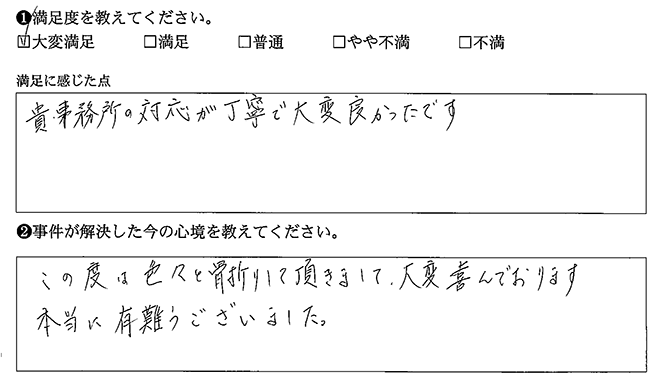 ❶満足度を教えてください。
☑大変満足 □満足 □普通 □やや不満 □不満
満足に感じた点
貴事務所の対応が丁寧で大変良かったです
❷事件が解決した今の心境を教えてください。
この度は色々と骨折りして頂きまして、大変喜んでおります
本当に有難うございました。